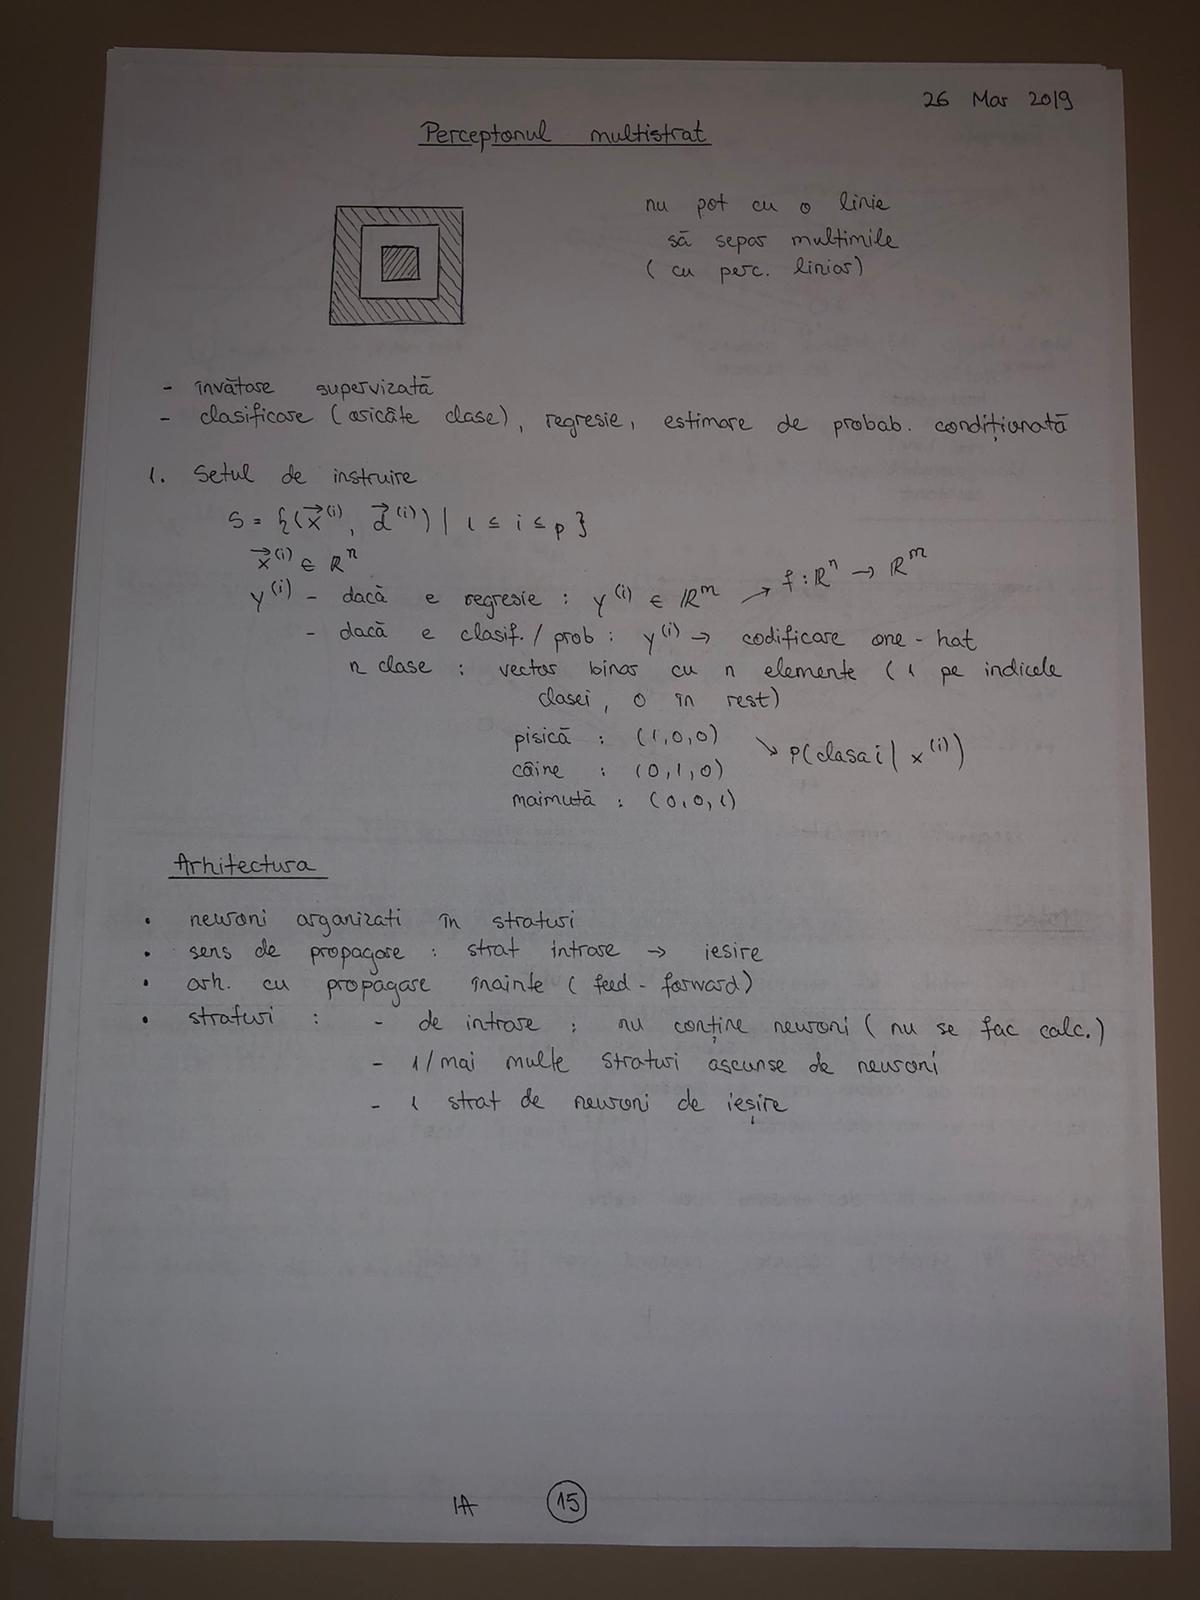 26 Mar 2019
Perceptonul multistrat
nu pot cu o linie
să separ multimile
( cu perc. liniar)
- învătare supervizată
- clasificare (oricâte clase), regresie, estimare de probab. condiționată
1. Setul de instruire
S = {(x⃗^(i), d⃗^(i)) | 1 ≤ i ≤ p }
x⃗^(i) ∈ ℝ^n
y^(i) - dacă e regresie : y^(i) ∈ ℝ^m ↗ f : ℝ^n → ℝ^m
- dacă e clasif. / prob : y^(i) → codificare one - hat
n clase : vector binar cu n elemente ( 1 pe indicele
clasei, 0 în rest)
pisică : (1,0,0) ↘ P(clasa i | x^(i))
câine : (0,1,0)
maimută : (0,0,1)
Arhitectura
• neuroni organizati în straturi
• sens de propagare : strat intrare → iesire
• arh. cu propagare înainte ( feed - forward)
• straturi : - de intrare : nu conține neuroni ( nu se fac calc.)
- 1/mai multe straturi ascunse de neuroni
- 1 strat de neuroni de ieșire
IA 15